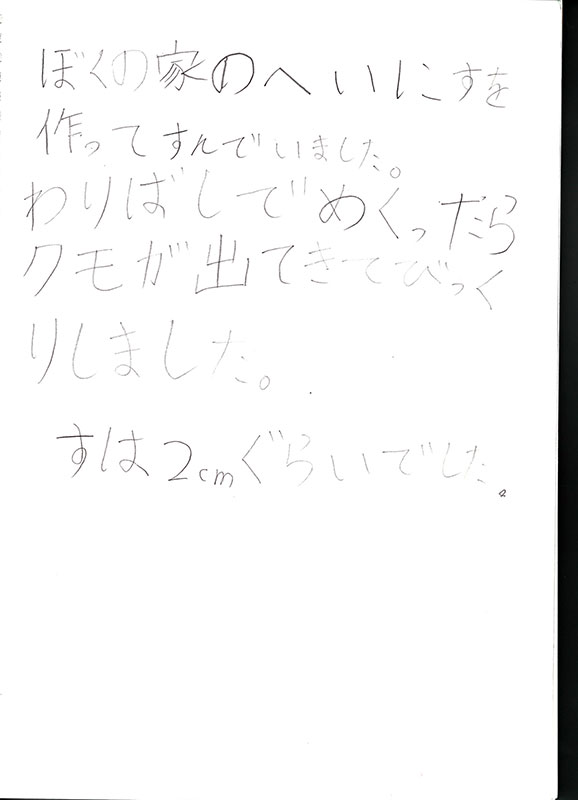 ぼくの家のへいにすを
作ってすんでいました。
わりばしでめくったら
クモが出てきてびっく
りしました。
すは2cmぐらいでした。